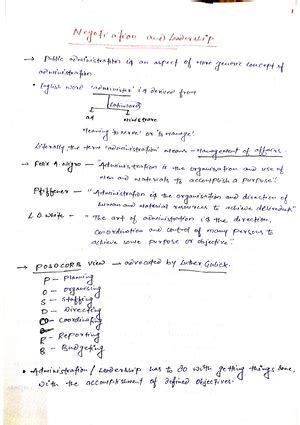 Negotiation and Leadership
→ Public administration is an aspect of more generic concept of
administration.
• English word 'administer' is derived from
Latin words
ad ministrare
'meaning to serve' or 'to manage'.
Literally the term 'administration' means - Management of affairs.
Felix A. Nigro — "Administration is the organisation and use of
men and materials to accomplish a purpose".
Pfiffner — "Administration is the organisation and direction of
human and material resources to achieve desired ends"
L.D. White - "The art of administration is the direction,
co-ordination and control of many persons to
achieve some purpose or objective".
→ POSDCORB view — advocated by Luther Gulick.
P - Planning
O - Organising
S - Staffing
D - Directing
CO - Coordinating
R - Reporting
B - Budgeting
• Administration / Leadership has to do with getting things done,
with the accomplishment of defined objectives.